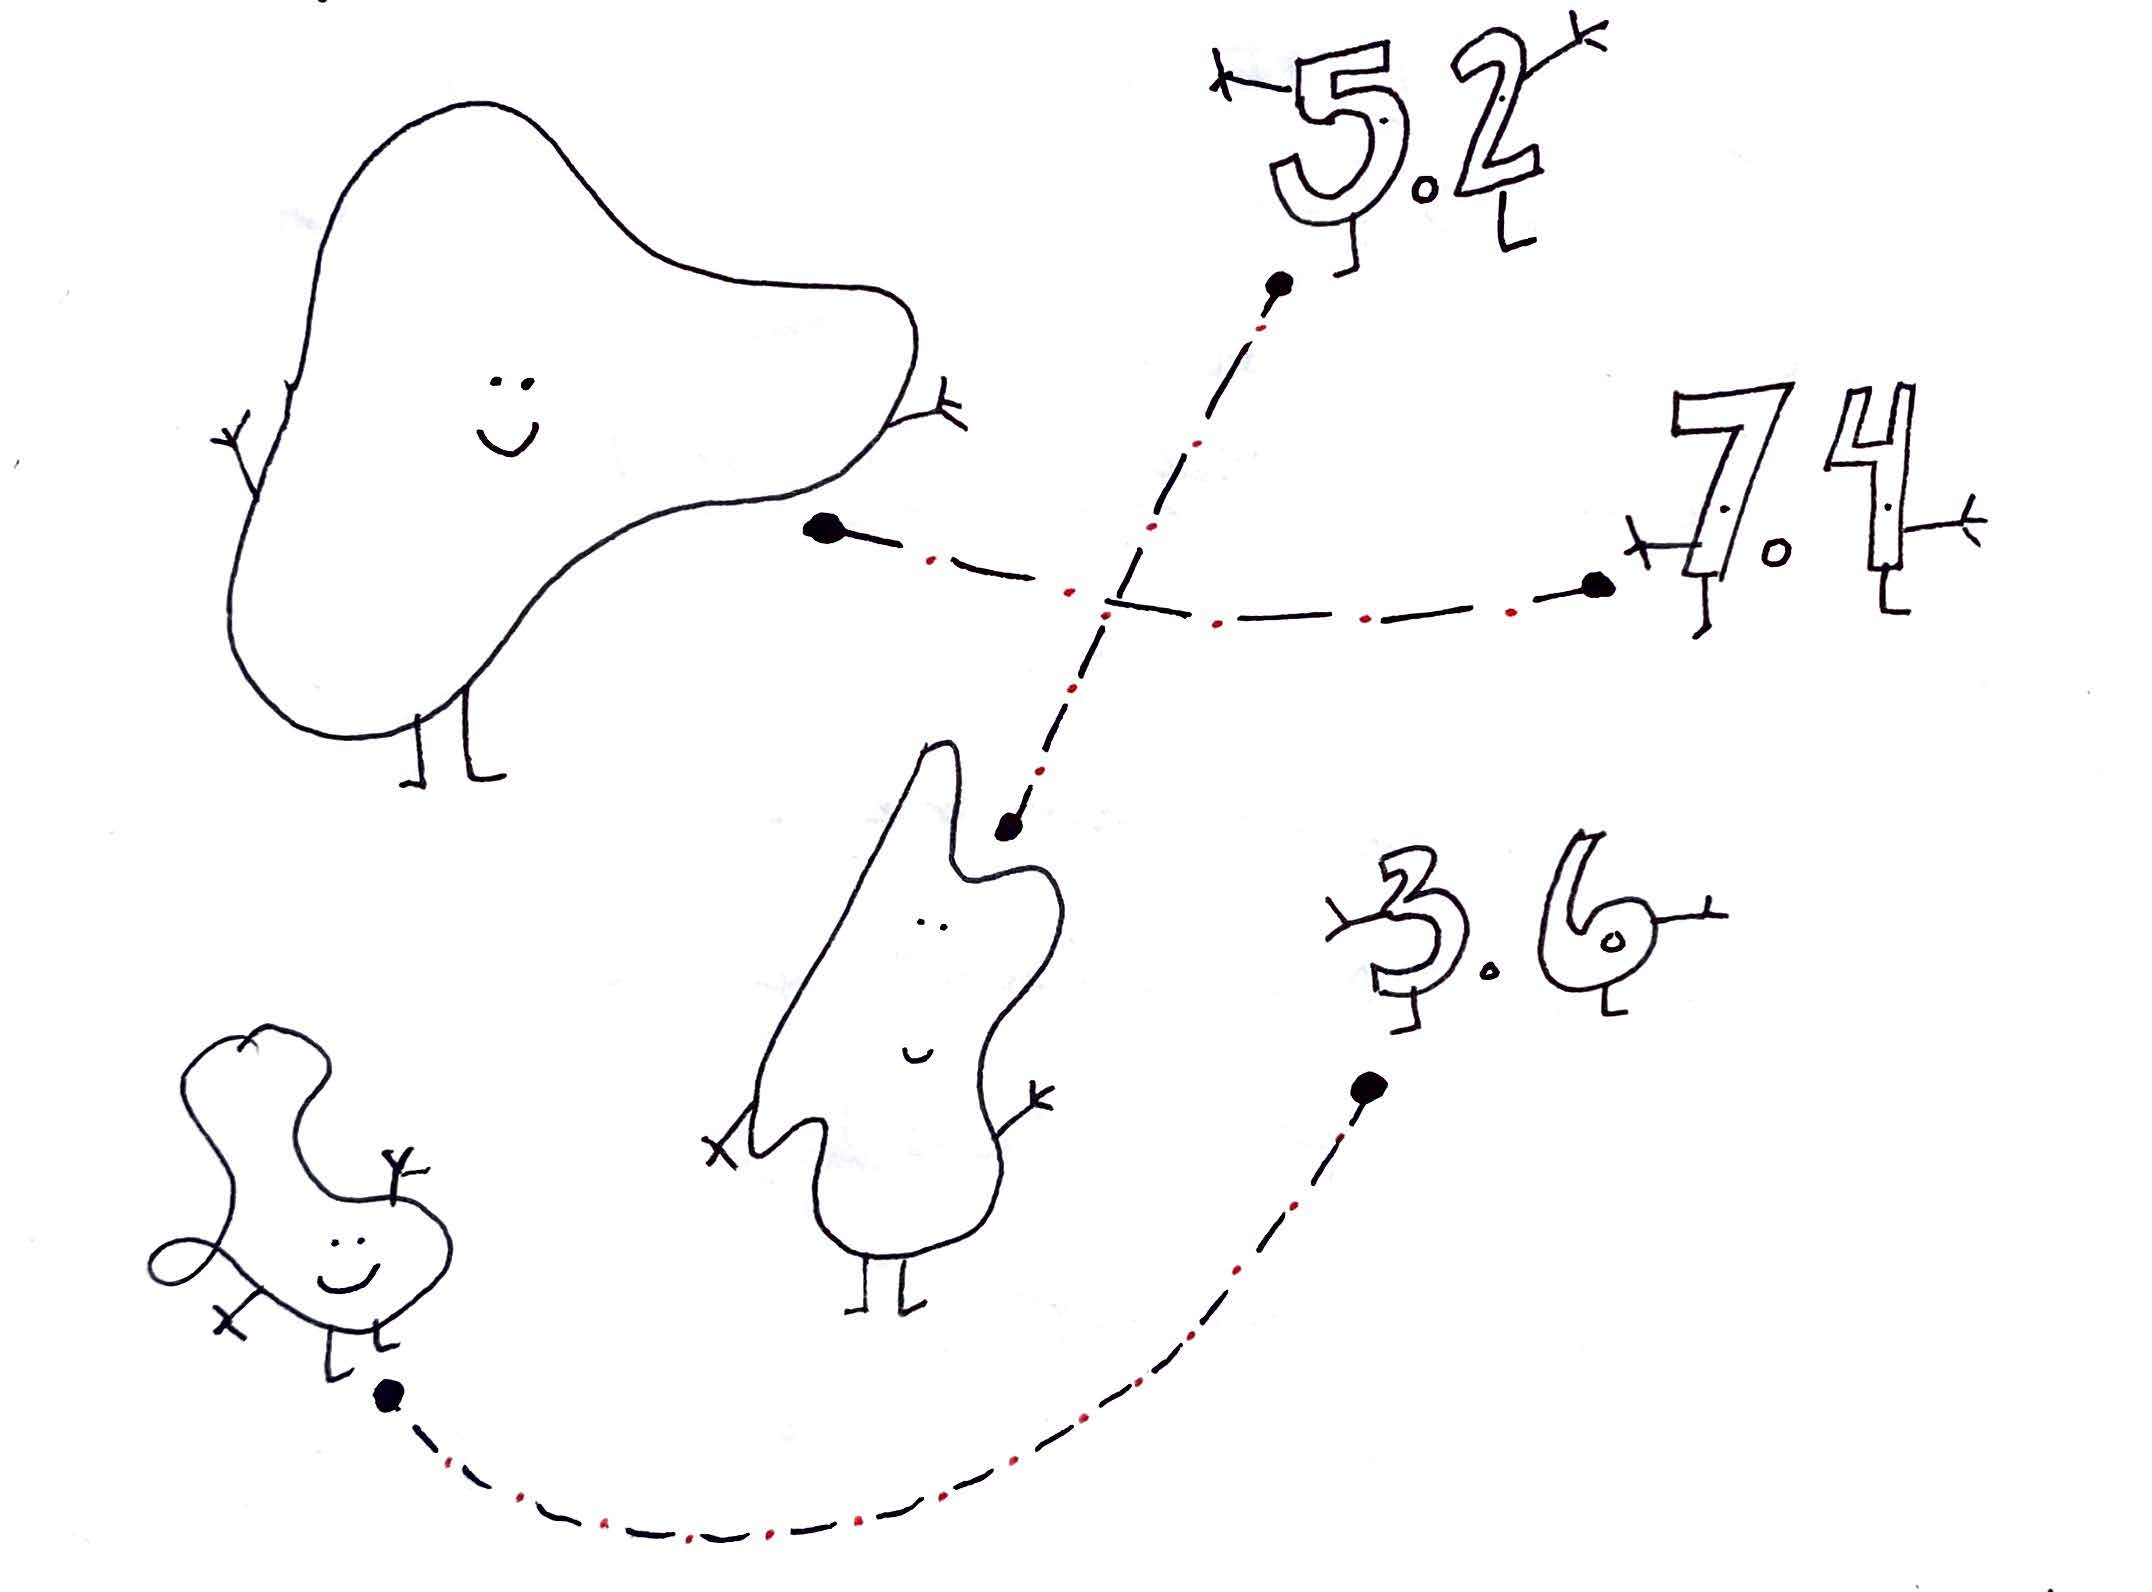 5.2
7.4
3.6